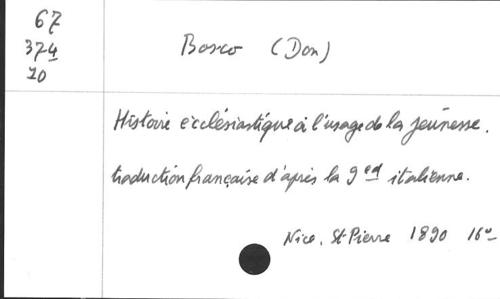 67
374
10
Bosco (Don)
Histoire ecclésiastique à l'usage de la jeunesse.
traduction française d'après la 9 ed italienne.
Nice, St Pierre 1890 16°